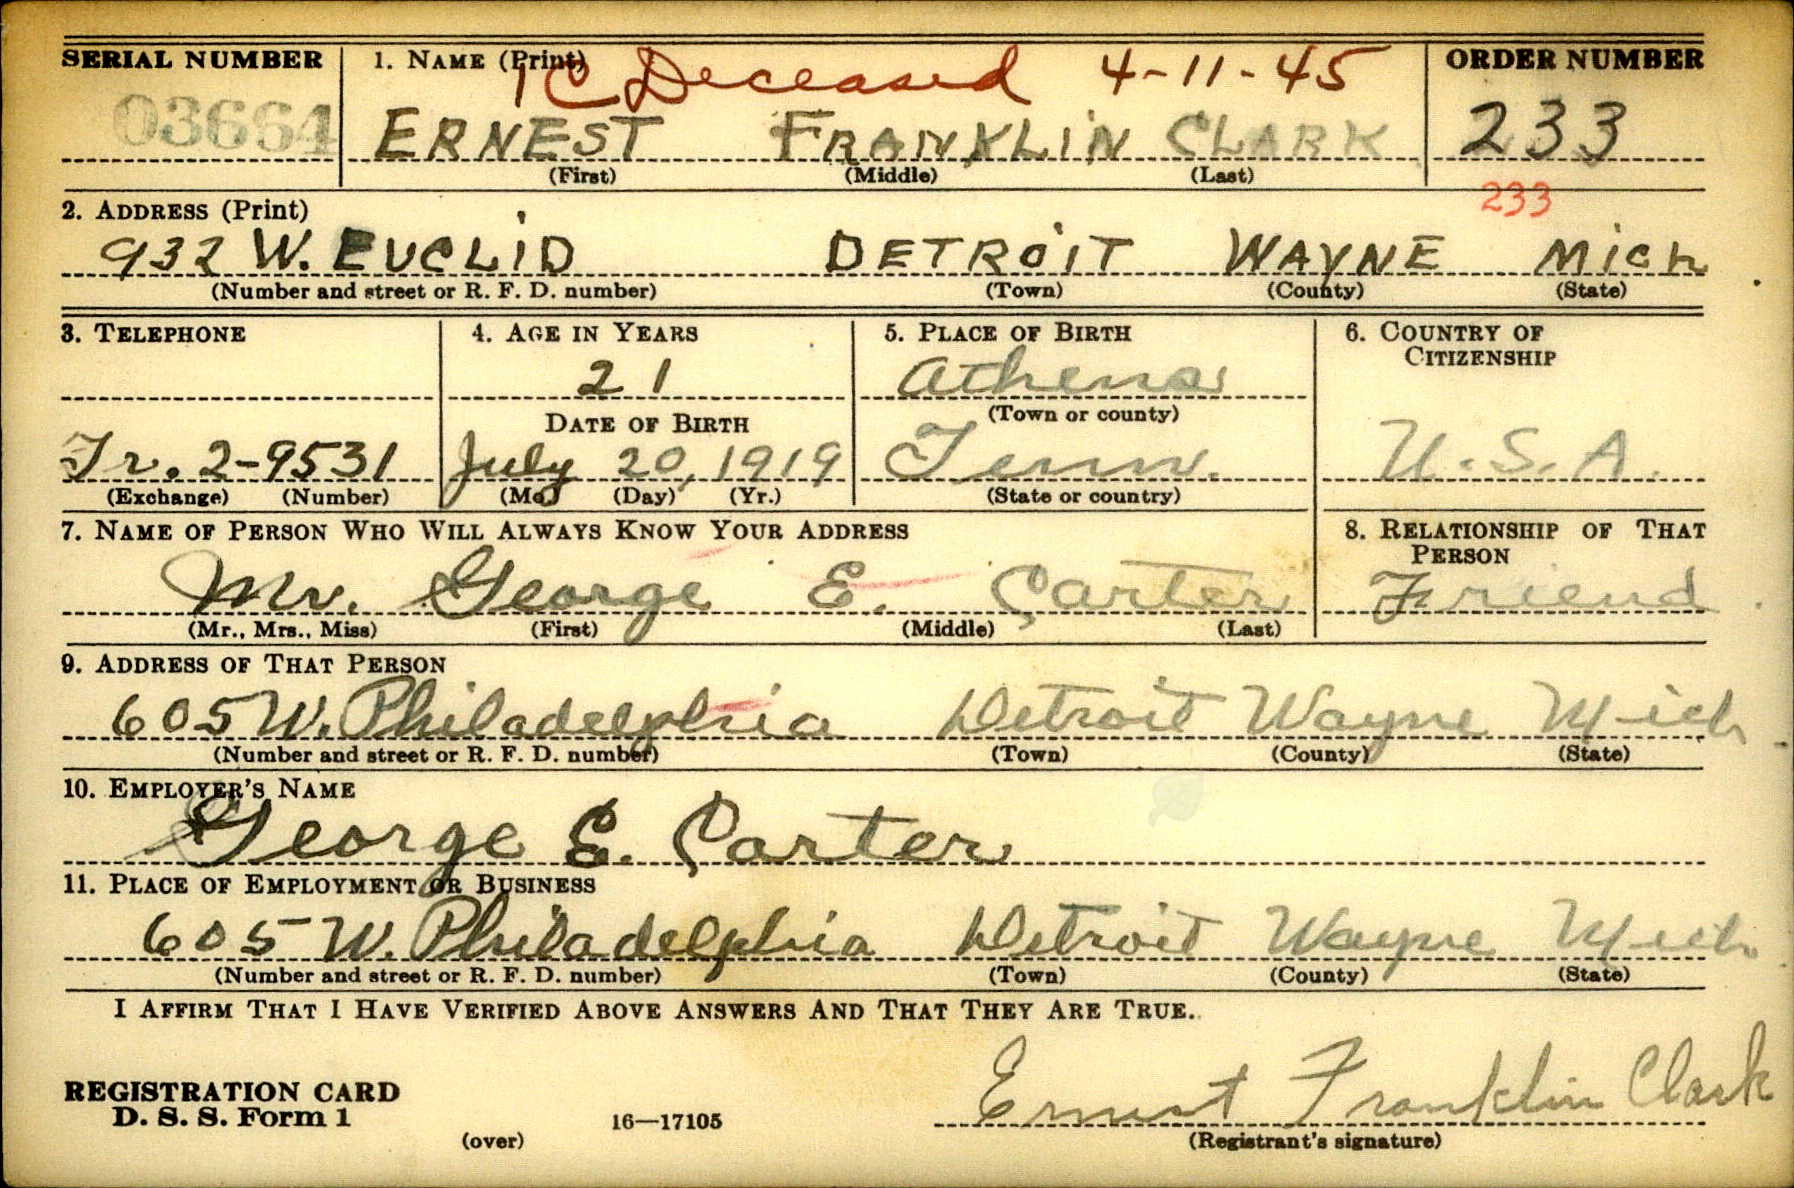 SERIAL NUMBER 1. NAME (Print) ORDER NUMBER
1C Deceased 4-11-45
03664 ERNEST FRANKLIN CLARK 233
(First) (Middle) (Last)
233
2. ADDRESS (Print)
932 W. EUCLID DETROIT WAYNE MICH
(Number and street or R. F. D. number) (Town) (County) (State)
3. TELEPHONE 4. AGE IN YEARS 5. PLACE OF BIRTH 6. COUNTRY OF CITIZENSHIP
21 Athens
DATE OF BIRTH (Town or county)
Tr. 2-9531 July 20, 1919 Tenn. U.S.A.
(Exchange) (Number) (Mo.) (Day) (Yr.) (State or country)
7. NAME OF PERSON WHO WILL ALWAYS KNOW YOUR ADDRESS 8. RELATIONSHIP OF THAT PERSON
Mr. George E. Carter Friend
(Mr., Mrs., Miss) (First) (Middle) (Last)
9. ADDRESS OF THAT PERSON
605 W. Philadelphia Detroit Wayne Mich
(Number and street or R. F. D. number) (Town) (County) (State)
10. EMPLOYER'S NAME
George E. Carter
11. PLACE OF EMPLOYMENT OR BUSINESS
605 W. Philadelphia Detroit Wayne Mich.
(Number and street or R. F. D. number) (Town) (County) (State)
I AFFIRM THAT I HAVE VERIFIED ABOVE ANSWERS AND THAT THEY ARE TRUE.
REGISTRATION CARD
D. S. S. Form 1 16—17105 Ernest Franklin Clark
(over) (Registrant's signature)